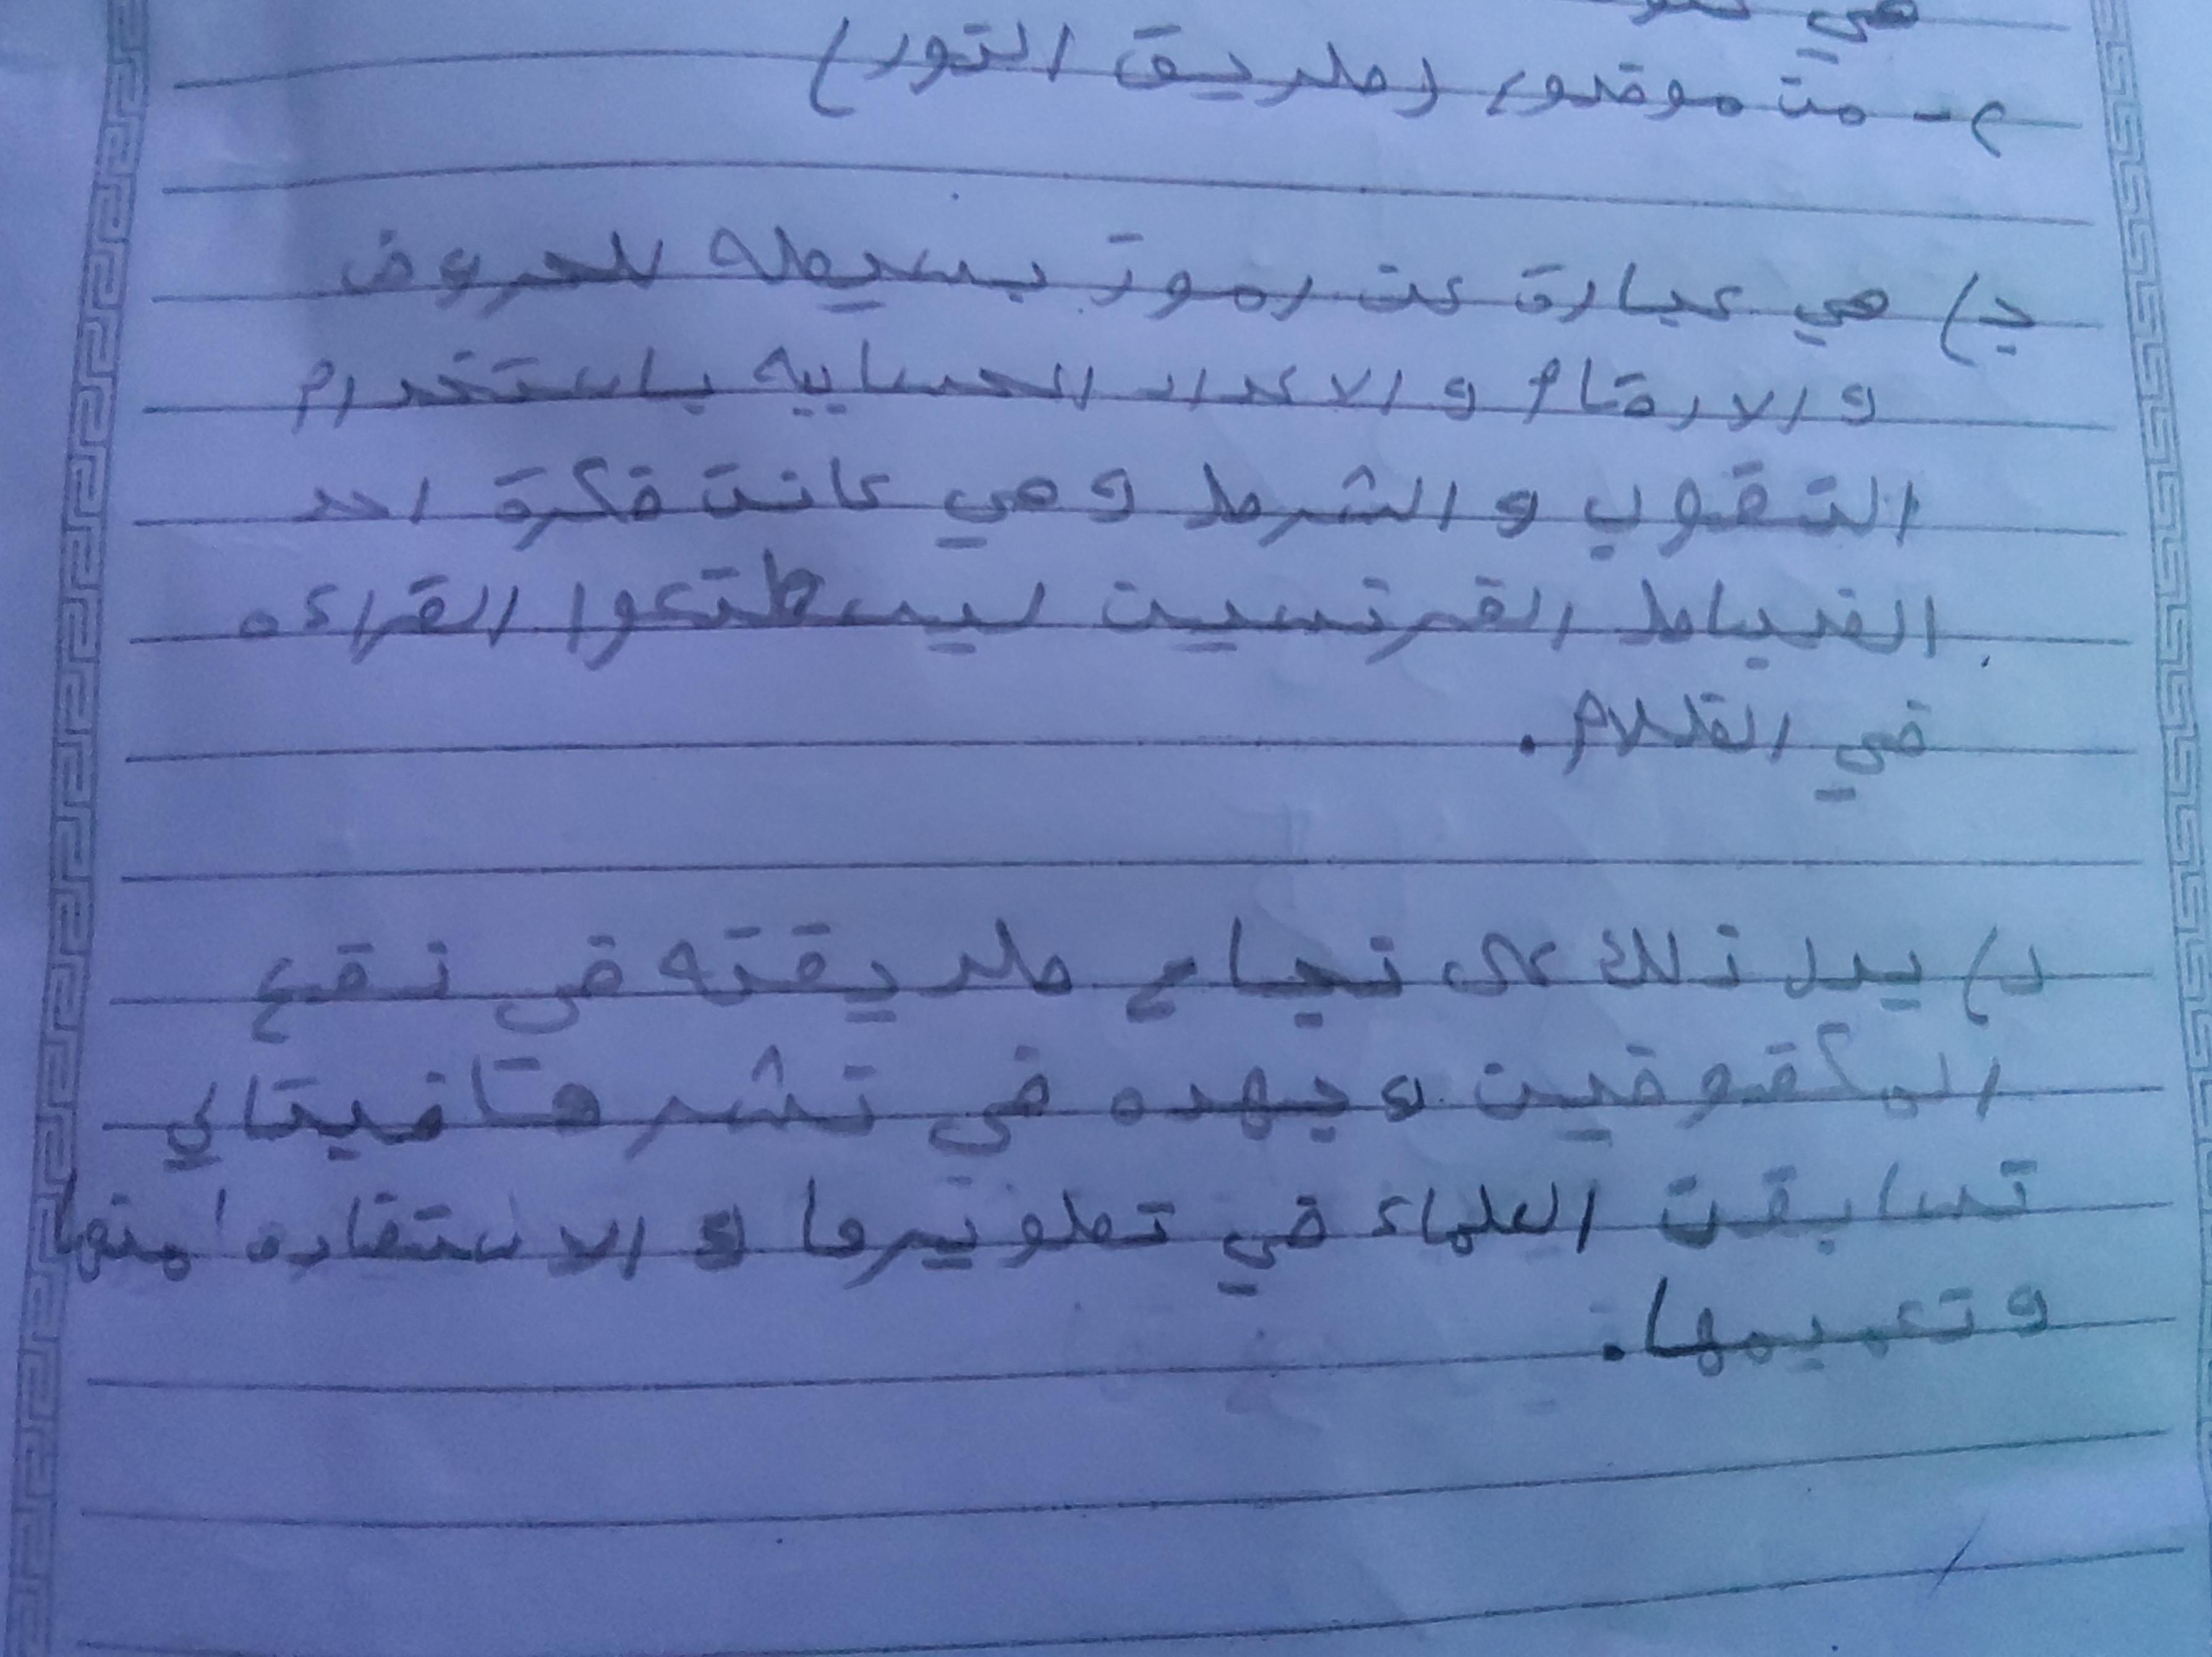 هي
٢- من موضوع (طريق النور)
ج) هي عبارة عن رموز بسيطه للحروف
و الارقام و الاعداد الحسابيه باستخدام
الثقوب و الشرط و هي كانت فكرة احد
الضباط الفرنسين ليسطتعوا القراءه
في الظلام.
د) يدل ذلك على نجاح طريقته فى نفع
المكفوفين و جهده في نشرها فبتالي
تسابقت العلماء في تطويرها و الاستفاده منها
و تعميمها.